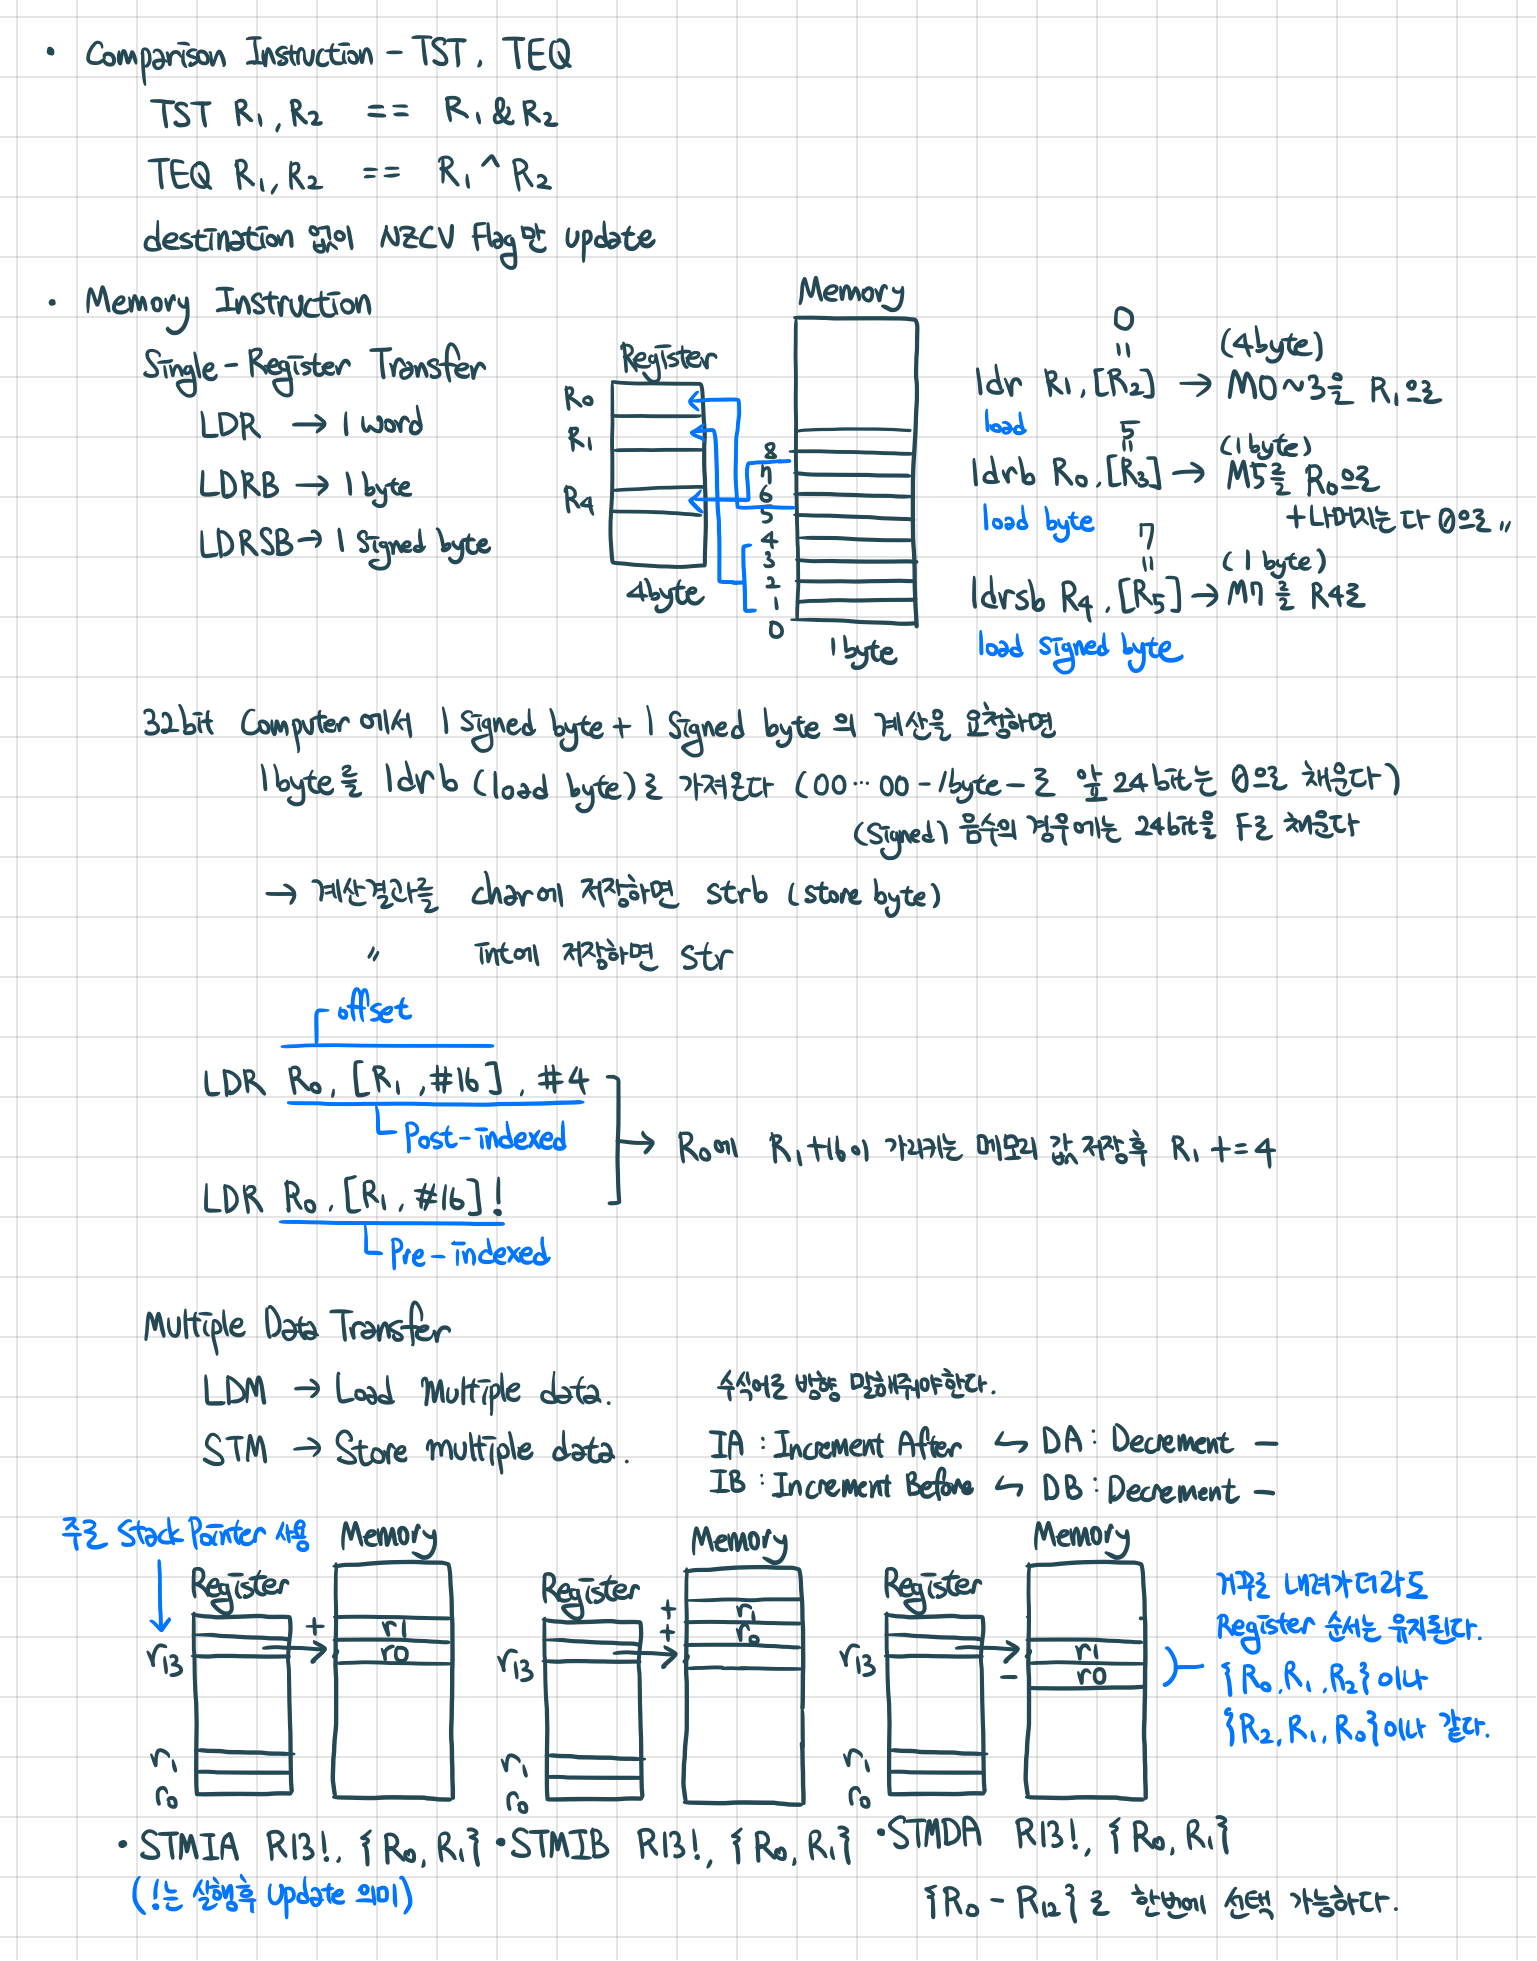 • Comparison Instruction - TST, TEQ
TST R1, R2 == R1 & R2
TEQ R1, R2 == R1 ^ R2
destination 없이 NZCV Flag만 update
• Memory Instruction
Single-Register Transfer
LDR → 1 word
LDRB → 1 byte
LDRSB → 1 Signed byte
Register
R0
R1
R4
4byte
Memory
8
7
6
5
4
3
2
1
0
1byte
0
=
(4byte)
ldr R1, [R2] → M0~3을 R1으로
load
5
=
(1byte)
ldrb R0, [R3] → M5를 R0으로
load byte
+나머지는 다 0으로 〃
7
=
(1byte)
ldrsb R4, [R5] → M7를 R4로
load signed byte
32bit Computer에서 1 Signed byte + 1 Signed byte 의 계산을 요청하면
1byte를 ldrb (load byte)로 가져온다 (00…00-1byte-로 앞 24bit는 0으로 채운다)
(Signed) 음수의 경우에는 24bit을 F로 채운다
→ 계산결과를 char에 저장하면 strb (store byte)
〃 int에 저장하면 str
offset
LDR R0, [R1, #16], #4
Post-indexed
→ R0에 R1+16이 가리키는 메모리 값 저장후 R1 += 4
LDR R0, [R1, #16]!
Pre-indexed
Multiple Data Transfer
LDM → Load Multiple data.
STM → Store multiple data.
수식어로 방향 말해줘야한다.
IA : Increment After ↔ DA : Decrement -
IB : Increment Before ↔ DB : Decrement -
주로 Stack Pointer 사용
Register
Memory
+
r1
r0
r13
r1
r0
• STMIA R13!, {R0, R1}
(!는 실행후 Update 의미)
Register
Memory
+
+
r1
r0
r13
r1
r0
• STMIB R13!, {R0, R1}
Register
Memory
r1
-
r0
r13
r1
r0
• STMDA R13!, {R0, R1}
거꾸로 내려가더라도
Register 순서는 유지된다.
{R0, R1, R2}이나
{R2, R1, R0}이나 같다.
{R0 - R12}로 한번에 선택 가능하다.